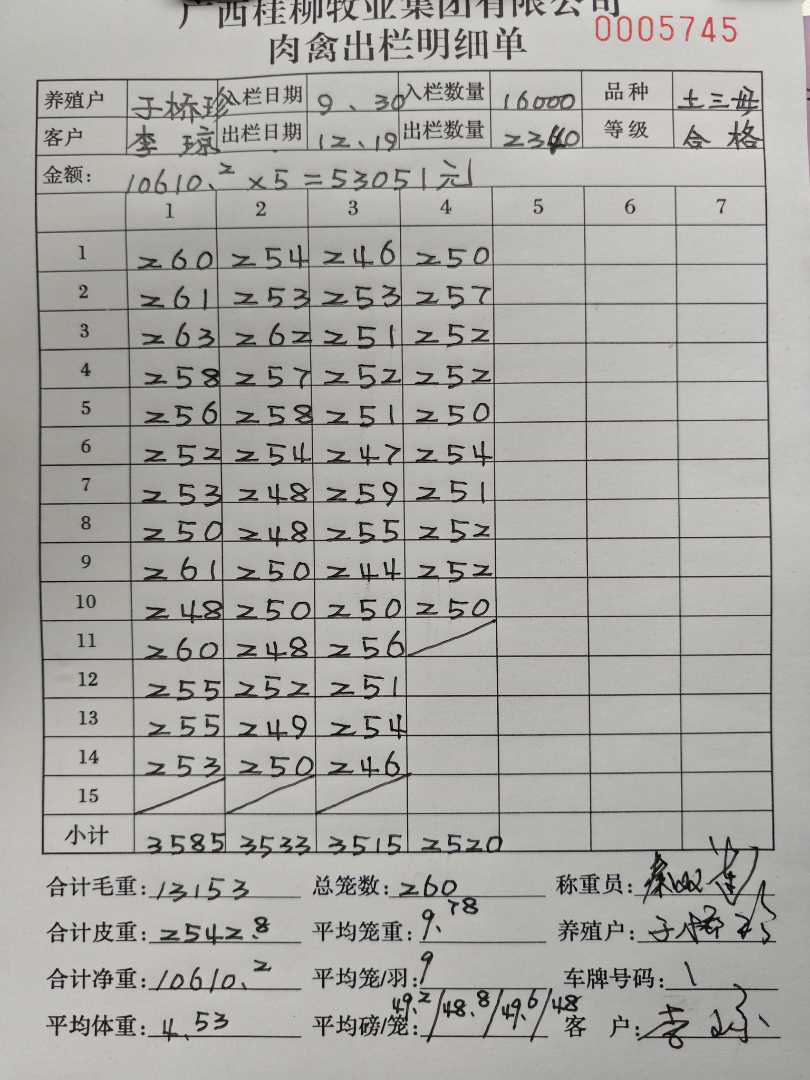 广西桂柳牧业集团有限公司
肉禽出栏明细单 0005745
养殖户 于桥珍 入栏日期 9、30 入栏数量 16000 品种 土三母
客户 李琼 出栏日期 12、19 出栏数量 2340 等级 合格
金额: 10610.2×5=53051元
1 2 3 4 5 6 7
1 260 254 246 250
2 261 253 253 257
3 263 262 251 252
4 258 257 252 252
5 256 258 251 250
6 252 254 247 254
7 253 248 259 251
8 250 248 255 252
9 261 250 244 252
10 248 250 250 250
11 260 248 256
12 255 252 251
13 255 249 254
14 253 250 246
15
小计 3585 3533 3515 2520
合计毛重: 13153 总笼数: 260 称重员:
合计皮重: 2542.8 平均笼重: 9.78 养殖户:
合计净重: 10610.2 平均笼/羽: 9 车牌号码: \
平均体重: 4.53 平均磅/笼: 49.2/48.8/49.6/48 客户: 李琼